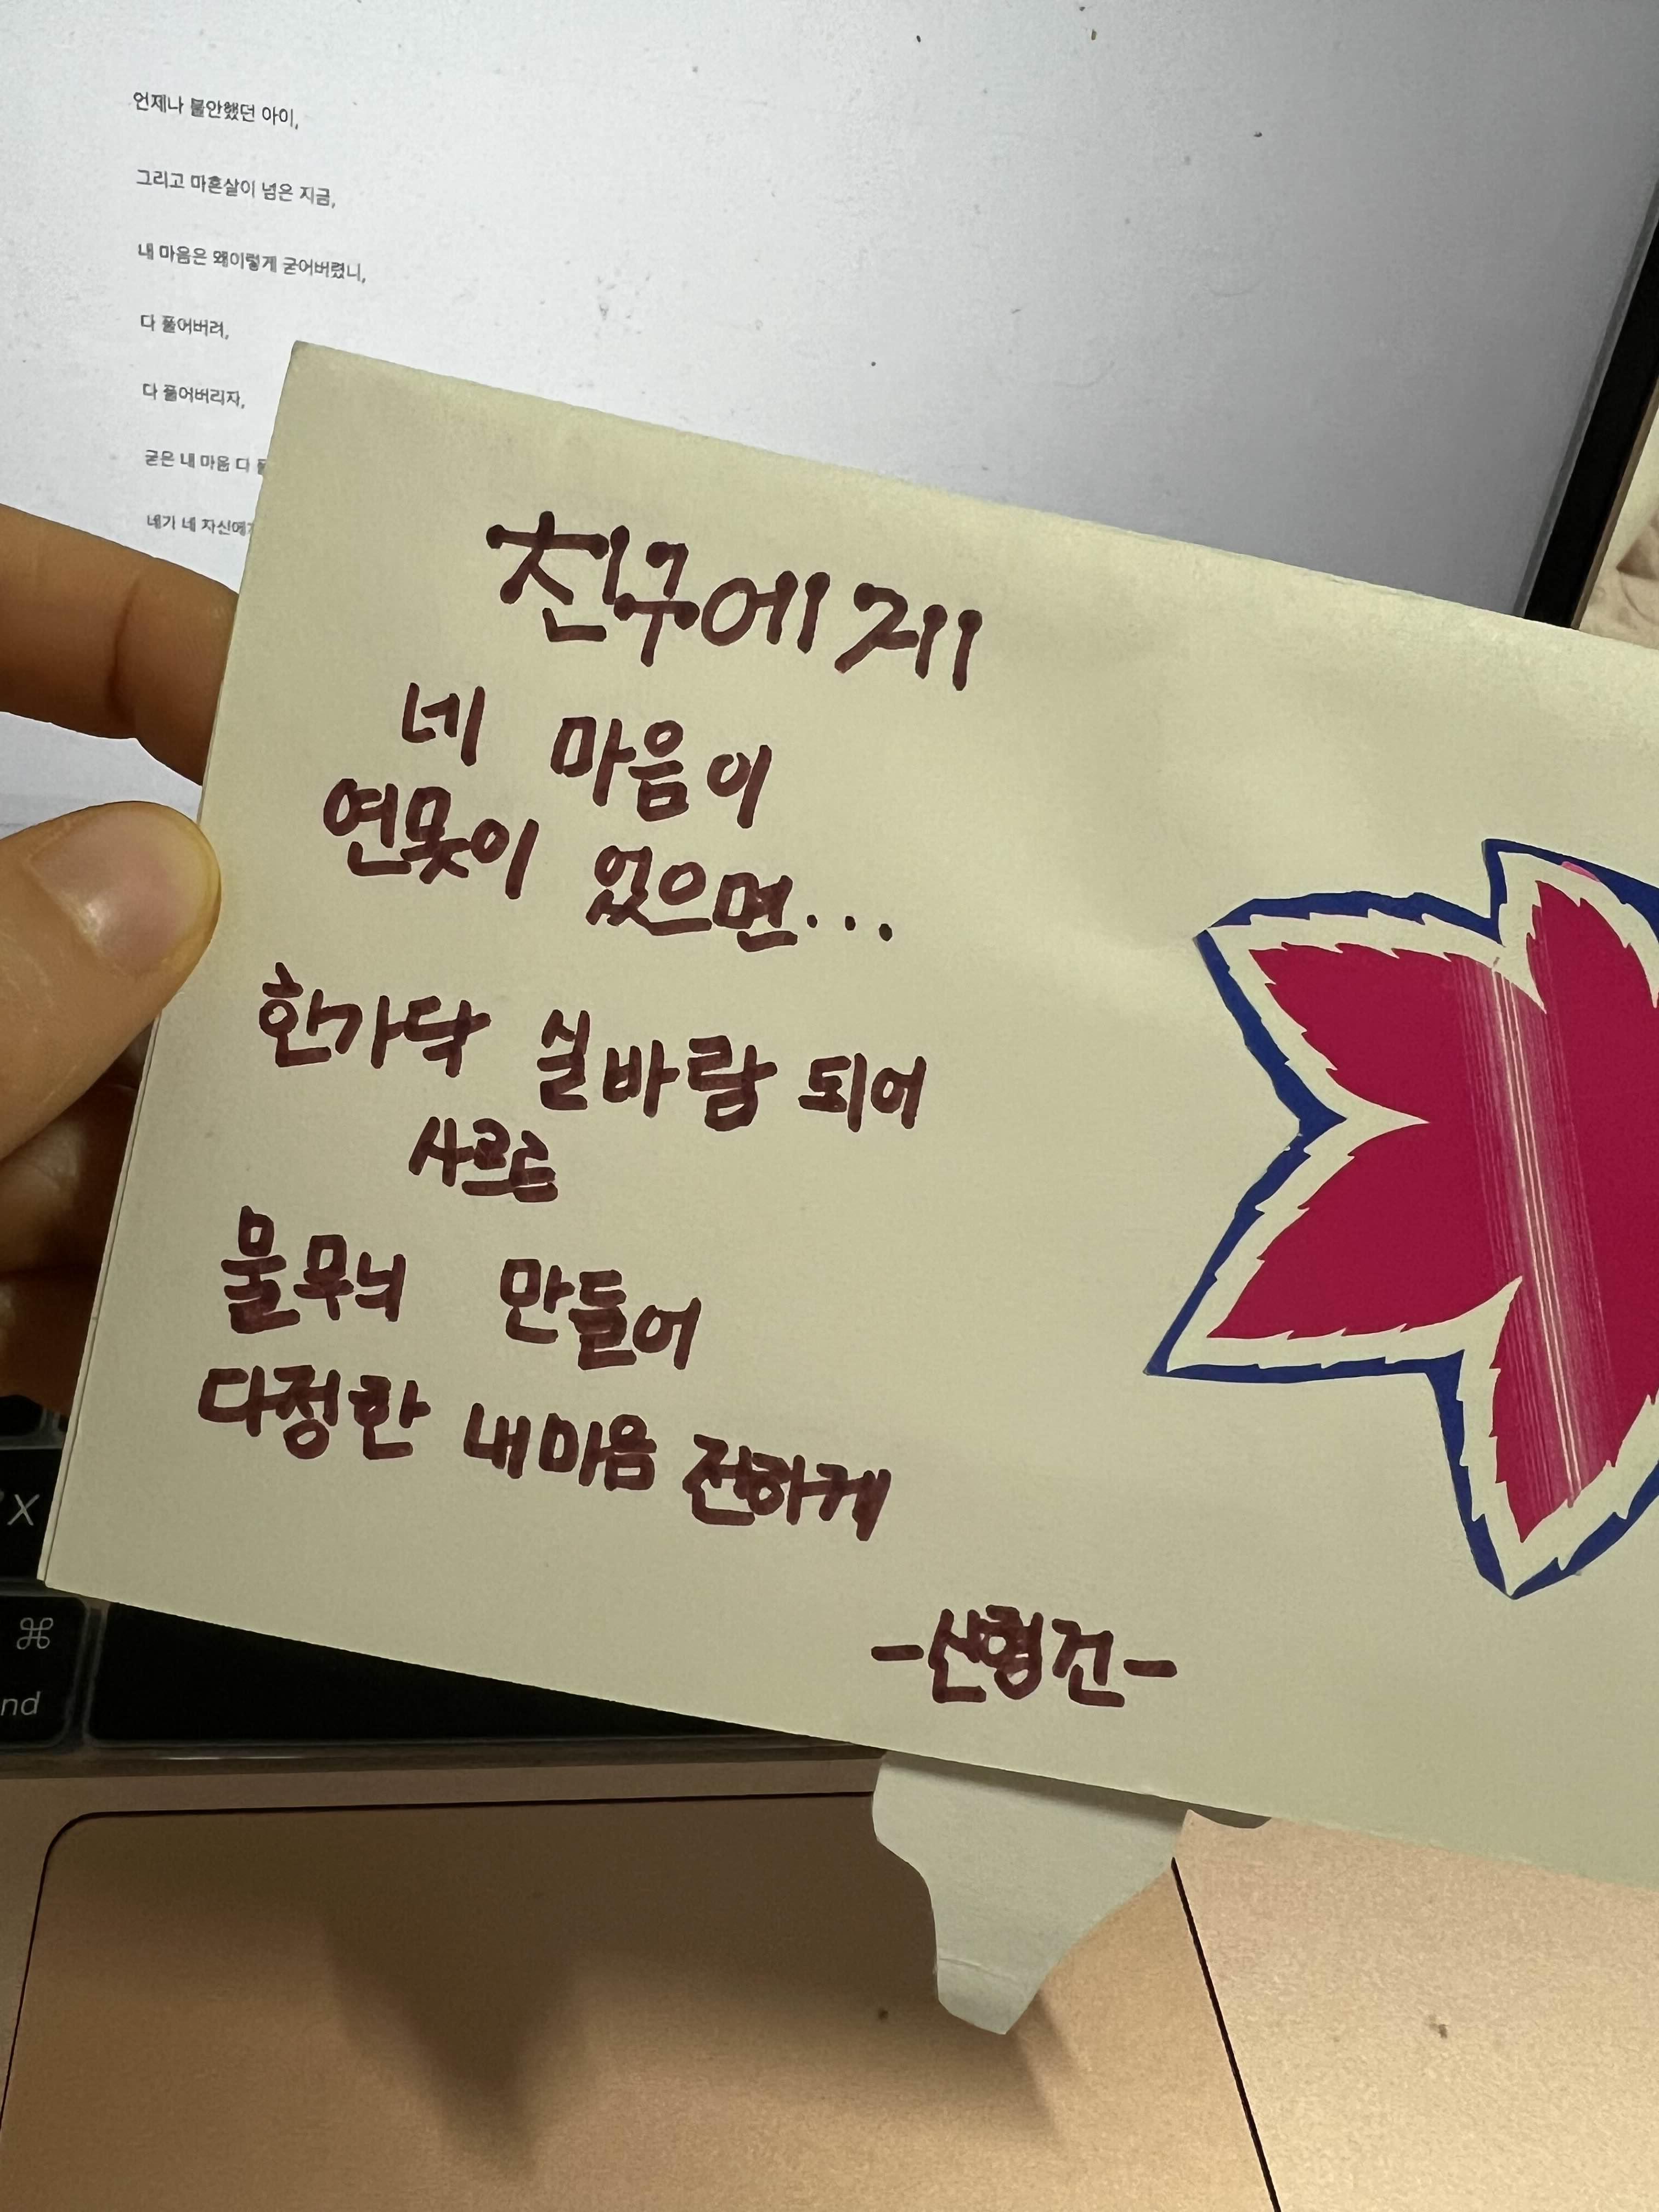 언제나 불안했던 아이,
그리고 마흔살이 넘은 지금,
내 마음은 왜이렇게 굳어버렸니,
다 풀어버려,
다 풀어버리자,
굳은 내 마음 다
네가 네 자신에게
친구에게
네 마음이
연못이 었으면...
한가닥 실바람 되어
사르르
물무늬 만들어
다정한 내마음 전하게
-신형건-
X
⌘
nd